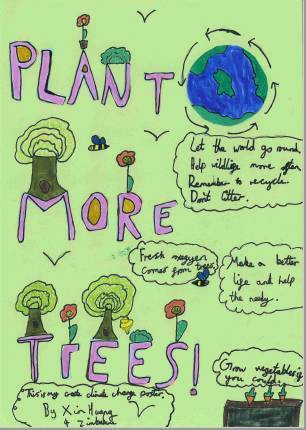 PLANT
Let the world go round.
Help wildlife more often
Remember to recycle.
Dont litter.
MORE
Fresh
comes from trees.
Make a better
life and help
the needy.
TREES!
Grow vegetables if
you could.
This is my climate change poster.
By Xin Huang